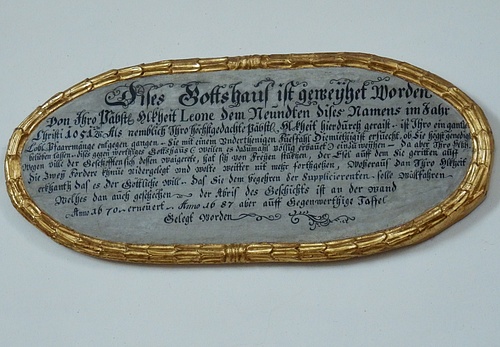 Dises Gottshaus ist geweyhet Worden
Von Ihro Päbstl. Hl:heit Leone dem Neundten dises Namens im Jahr
Christi 105 Als nemblich Ihro höchstgedacht Päbstl. Hl:heit hierdurch geraist ist Ihro ein gantze
Löbl. Pfarrmänge entgegen gangen Sie mit einem Underthenigen Fueßfahl Diemiethigist ersuecht, ob Sie
belieben lassen dises gegen werthiges Gottshaus weilen es dazumahl völlig erbauet einzuweihen Da aber Ihro
Wegen ville der Geschefften sich dessen waigerte, hat sich von Freyen stücken, der Esel auff dem Sie geritten auff
die Zway Fordere Knüe nidergelegt und wolte weitter nit mehr fortgehen, Woherauß dan Ihro Hl:heit
erkhantt daß es der Göttliche will Daß Sie dem begehren der Supplicierenten solle Willfahren
Welches dan auch geschechen der Abriß des Geschichts ist an der wand
Anno 1670 erneuert Anno 1687 aber auff Gegenwerthige Taffel
Gelegt Worden